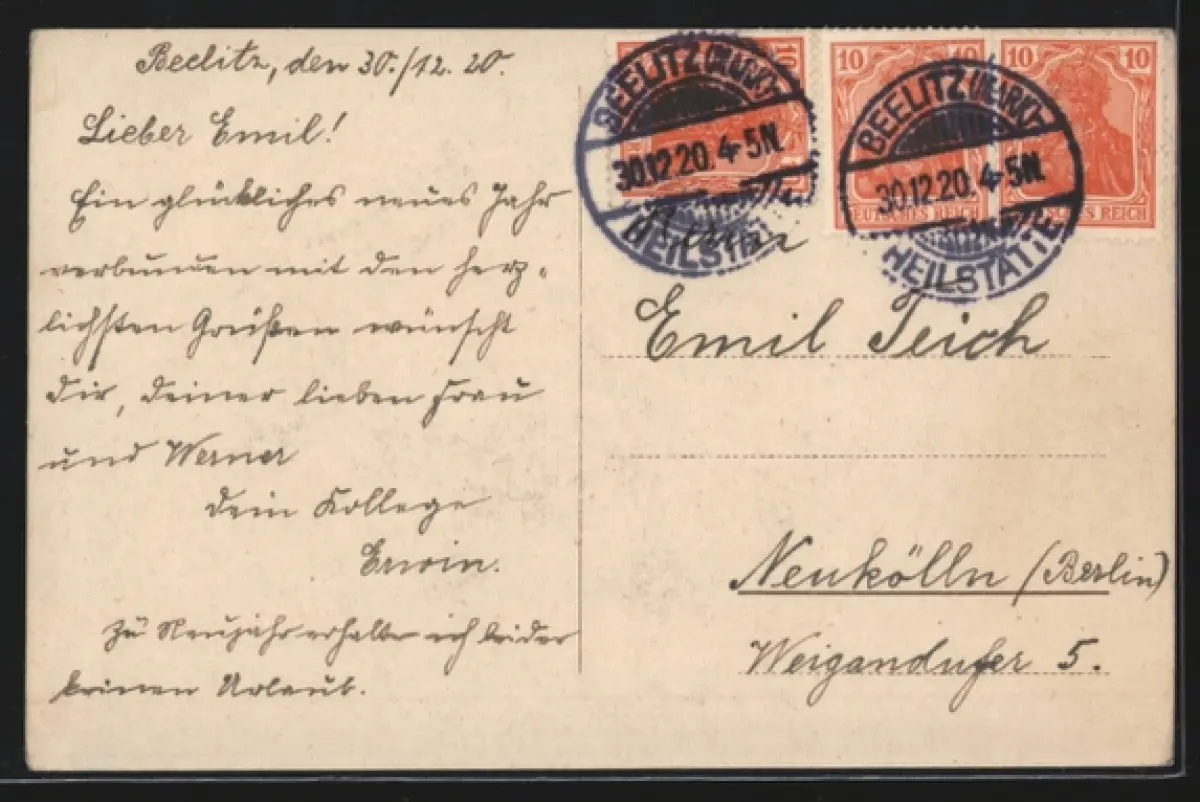 Beelitz, den 30./12. 20.
Lieber Emil!
Ein glückliches neues Jahr
verbunden mit den herz-
lichsten Grüßen wünscht
Dir, deiner lieben Frau
und Werner
dein Kollege
Erwin.
Zu Neujahr erhalte ich leider
keinen Urlaub.
10
BEELITZ (MARK)
30.12.20. 4-5N.
HEILSTÄTTE
10 10
DEUTSCHES REICH
10 10
DEUTSCHES REICH
BEELITZ (MARK)
30.12.20. 4-5N.
HEILSTÄTTE
Herrn
Emil Teich
Neukölln (Berlin)
Weigandufer 5.